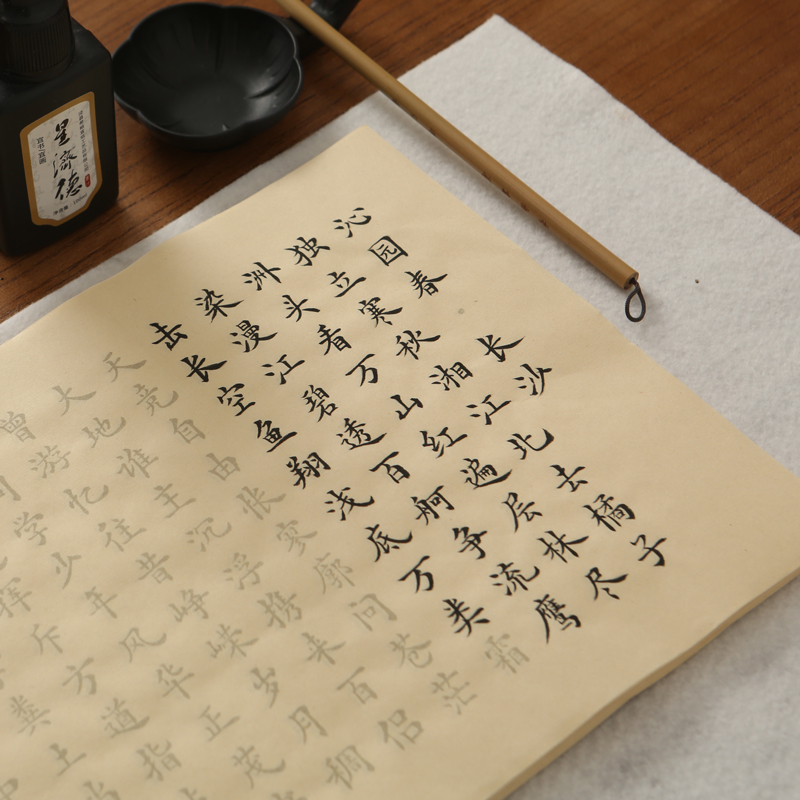 沁园春 长沙
独立寒秋湘江北去橘子
洲头看万山红遍层林尽
染漫江碧透百舸争流鹰
击长空鱼翔浅底万类霜
天竞自由怅寥廓问苍茫
大地谁主沉浮携来百侣
曾游忆往昔峥嵘岁月稠
同学少年风华正茂
挥斥方遒指
粪土当
宜书宜画
濟德